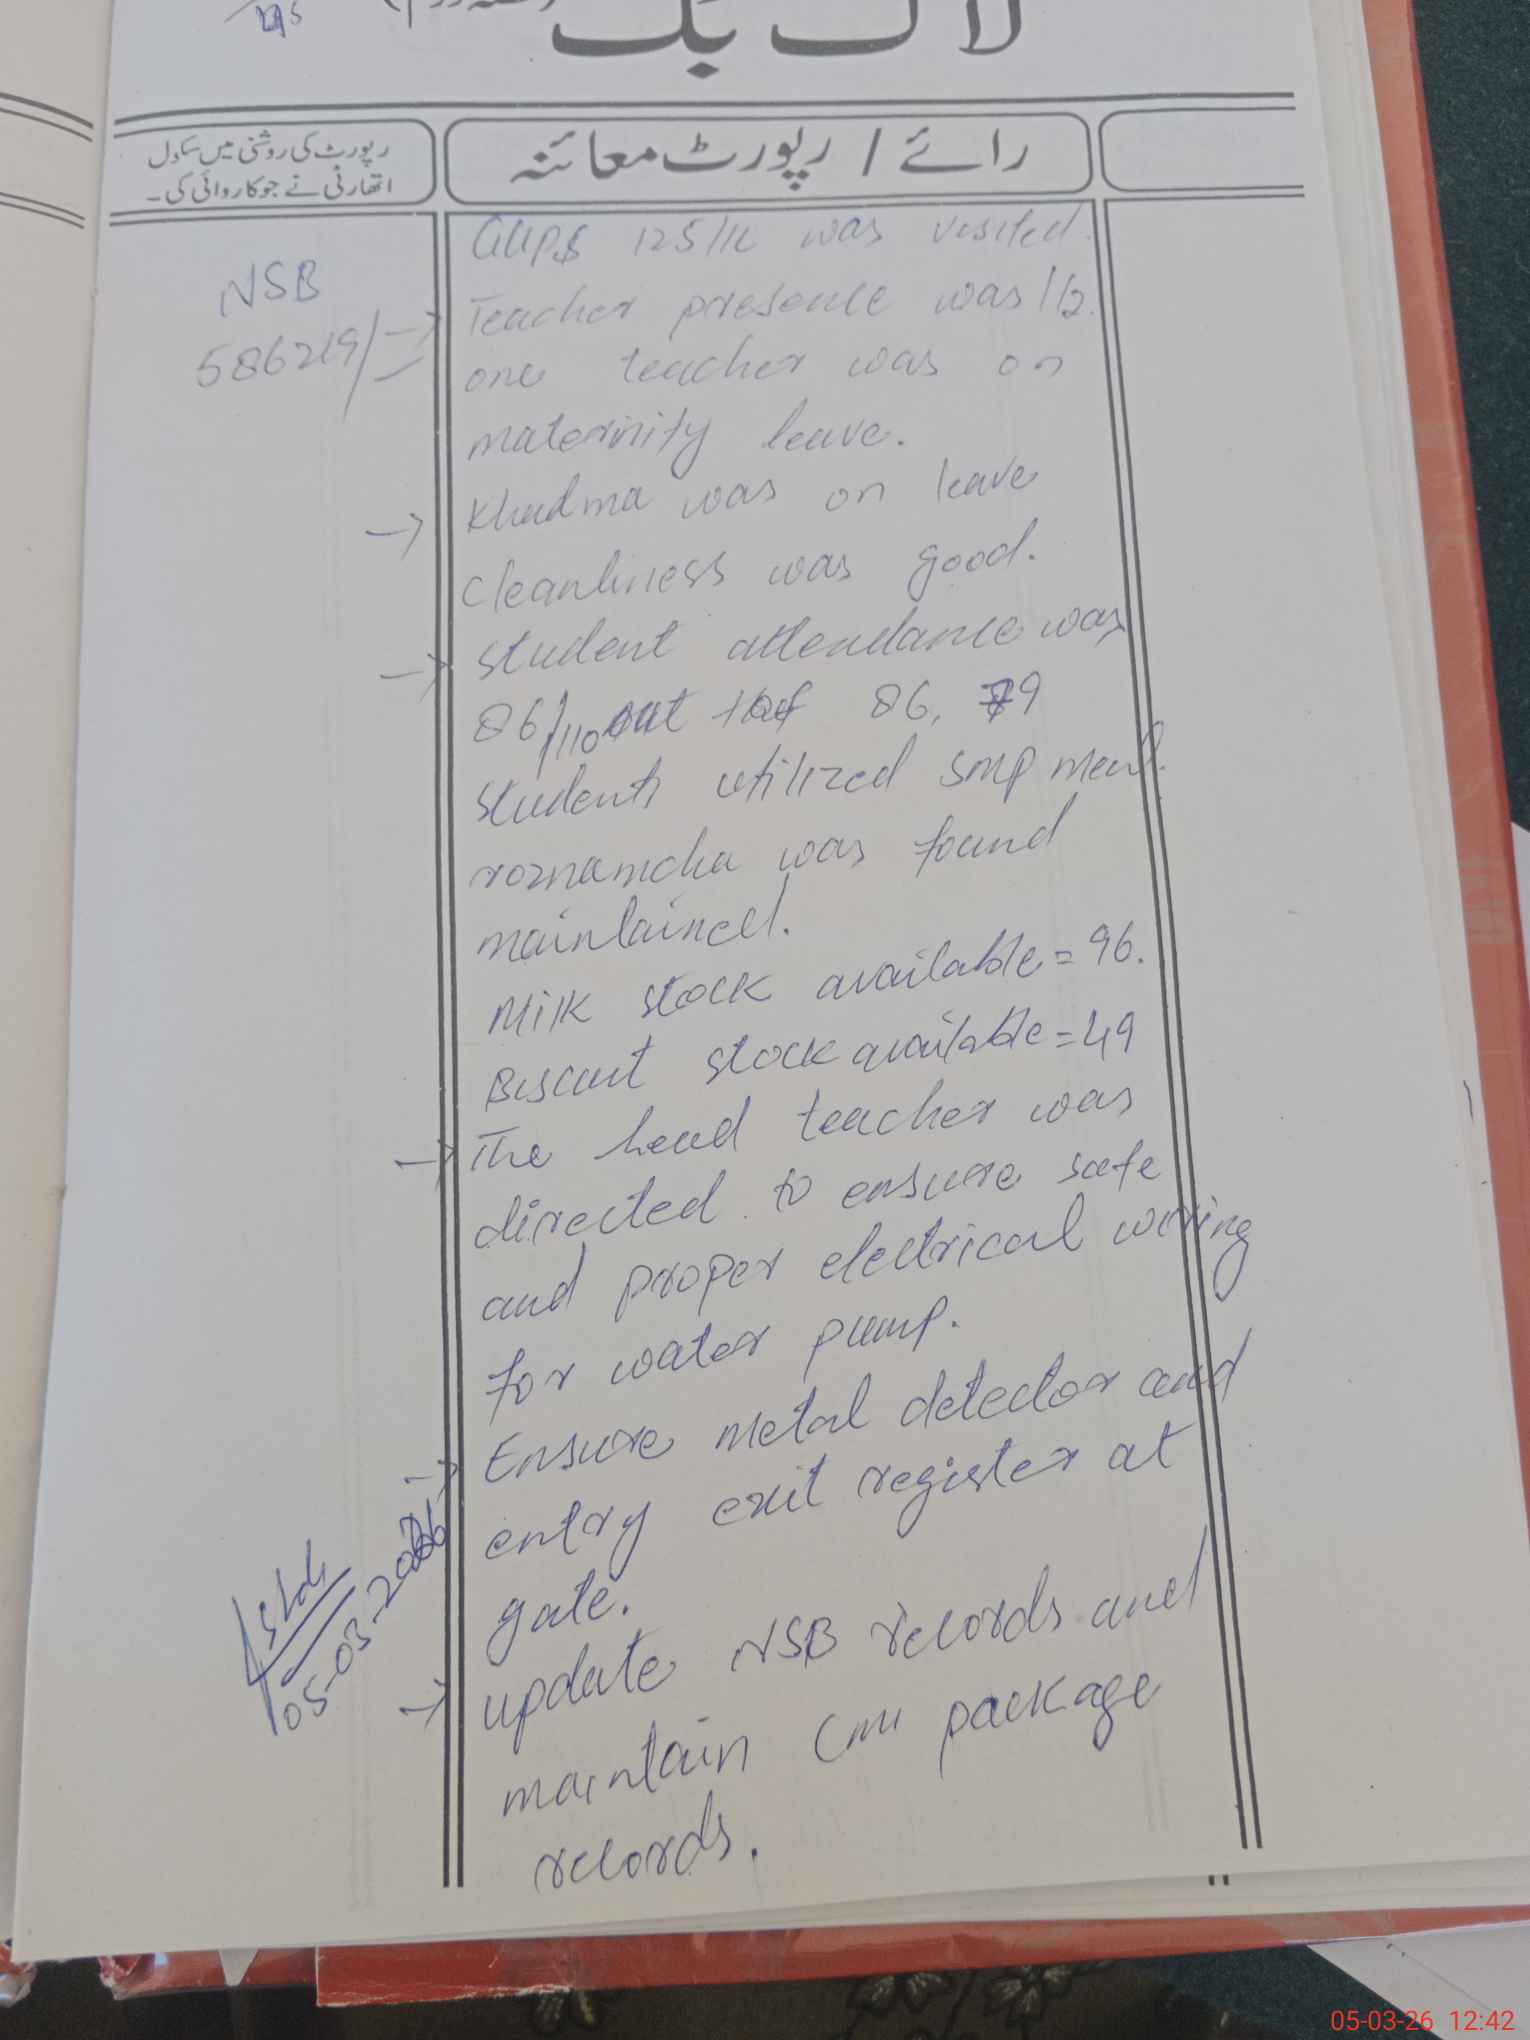 لاگ بک
رپورٹ کی روشنی میں سکول
اتھارٹی نے جو کاروائی کی۔
رائے / رپورٹ معائنہ
NSB
586219/-
GGPS 125/1L was visited.
→ Teacher presence was 1/2.
one teacher was on
maternity leave.
→ Khadma was on leave
Cleanliness was good.
→ Student attendance was
86/110 out of 86, 79
students utilized SMP meal.
roznamcha was found
maintained.
Milk stock available = 96.
Biscuit stock available = 49
→ The head teacher was
directed to ensure safe
and proper electrical wiring
for water pump.
→ Ensure metal detector and
entry exit register at
gate.
→ update NSB records and
maintain CM package
records.
05-03-2026
05-03-26 12:42